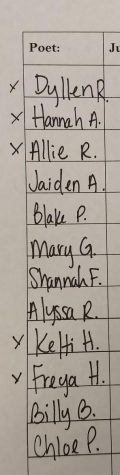 Poet: Ju
x Dyllen R.
x Hannah A.
x Allie R.
Jaiden A.
Blake P.
Mary G.
Shannah F.
Alyssa R.
x Kelti H.
x Freya H.
Billy B.
Chloe P.